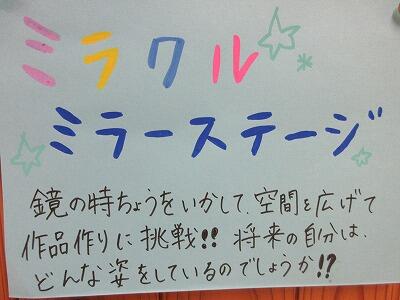 ミラクル
ミラーステージ
鏡の時ちょうをいかして、空間を広げて
作品作りに挑戦!! 将来の自分は、
どんな姿をしているのでしょうか!?